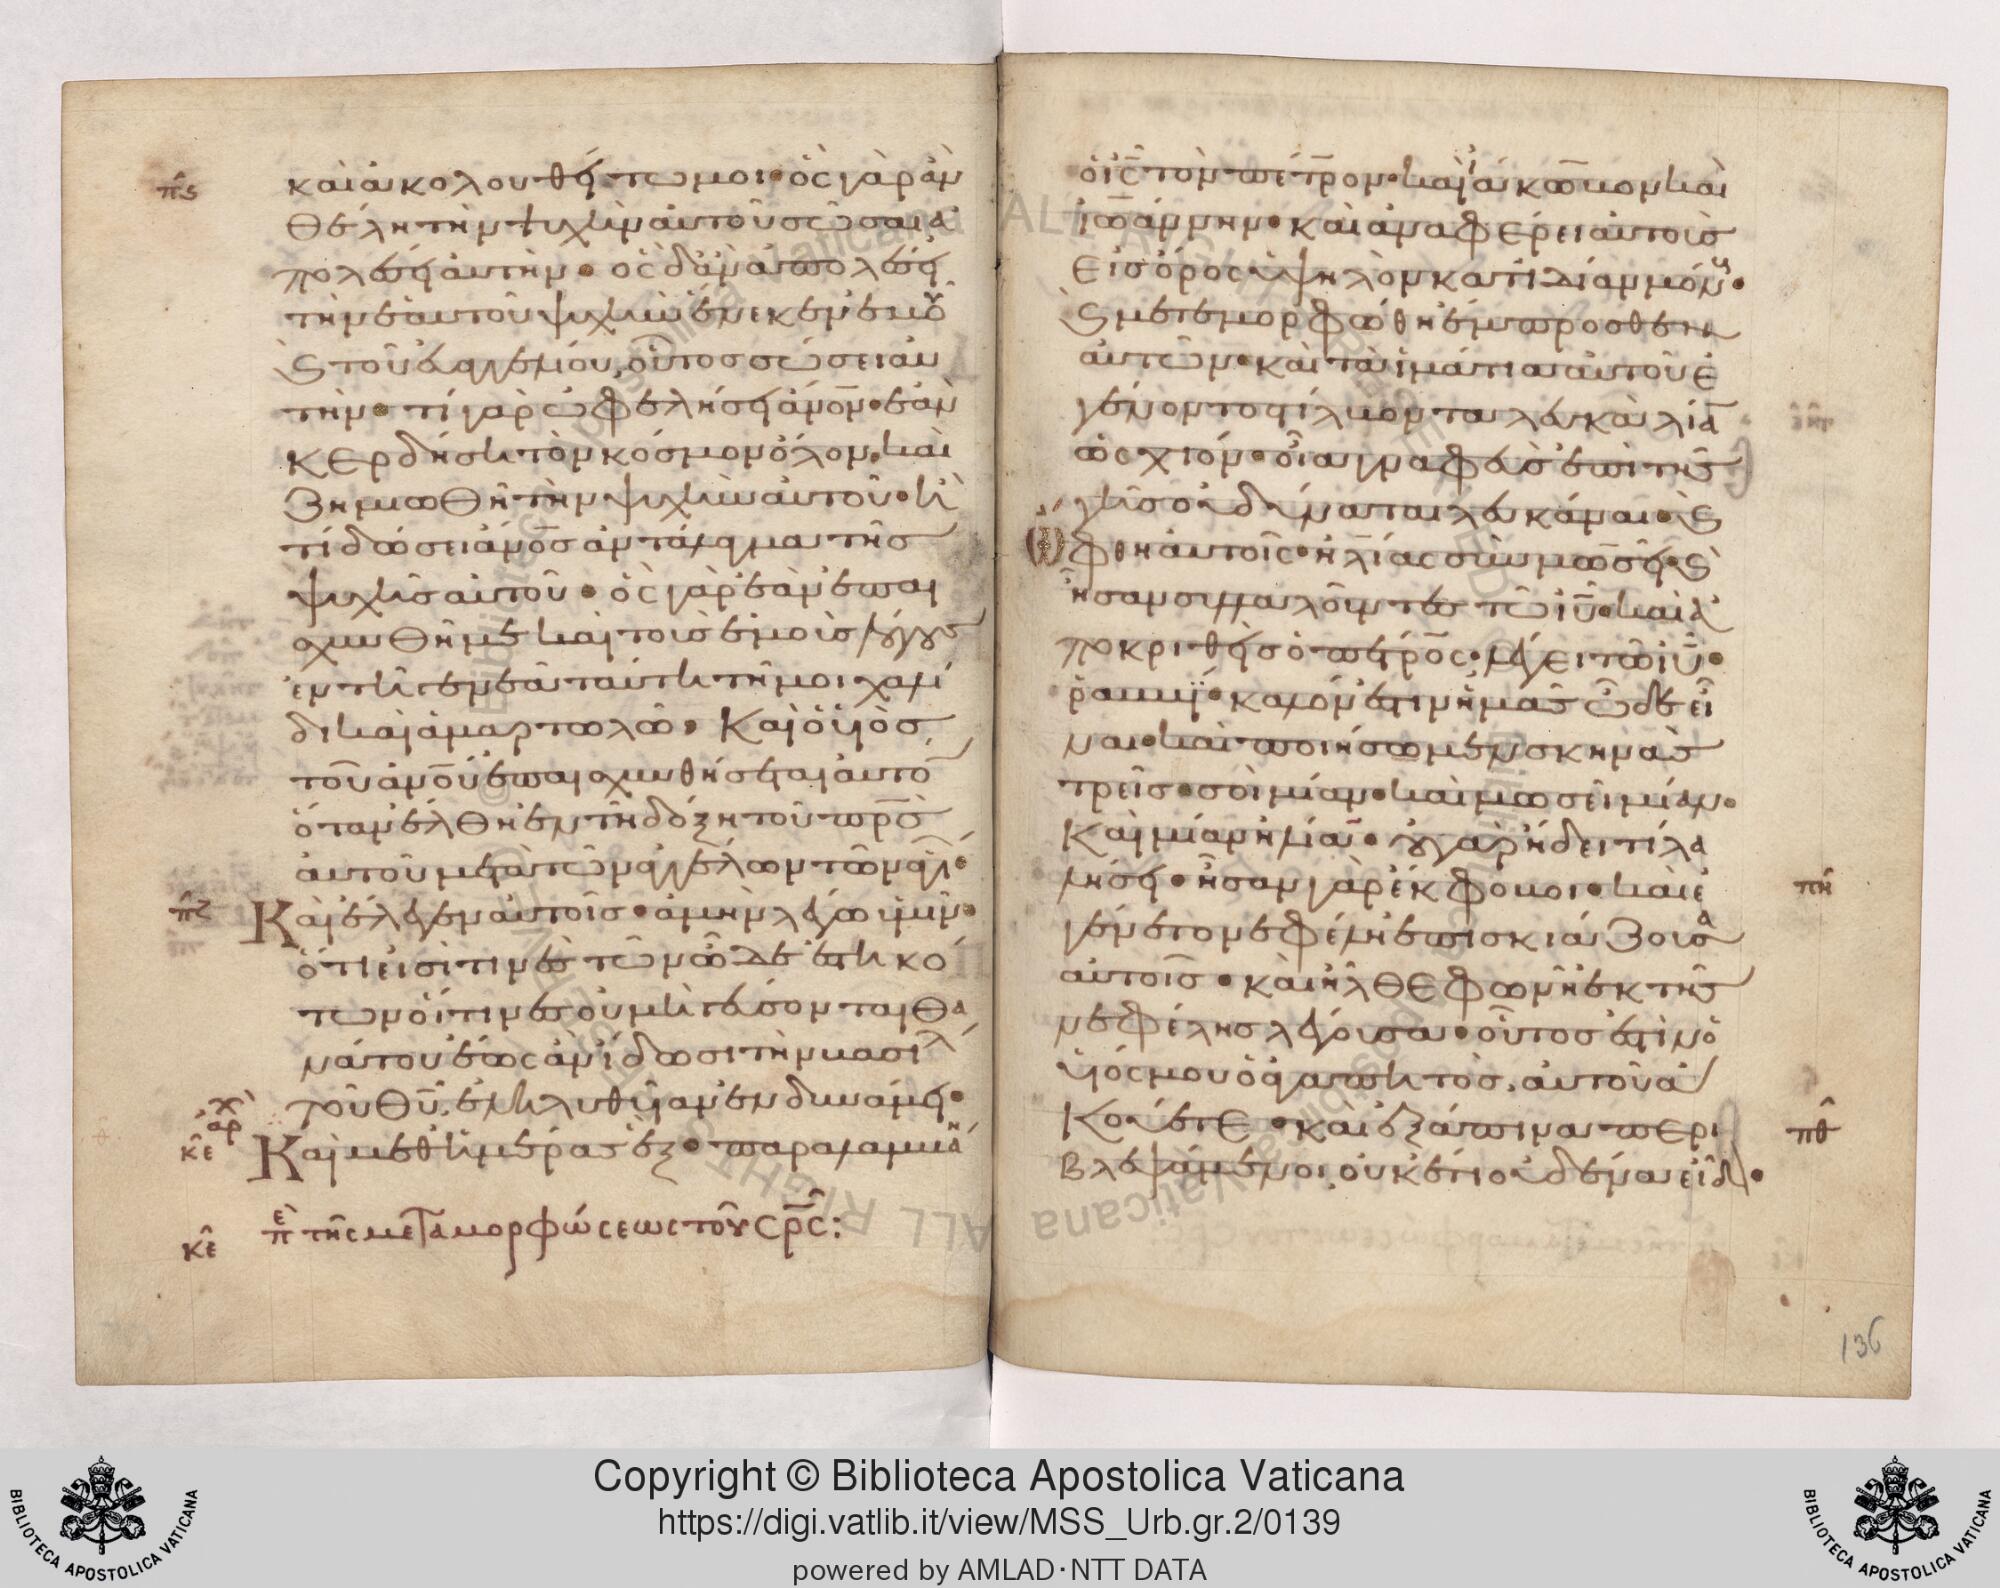 πϛ
καὶ ἀκολουθείτω μοι· ὃς γὰρ ἂν
θέλη τὴν ψυχὴν αὐτοῦ σῶσαι ἀ
πολέσει αὐτήν· ὃς δ' ἂν ἀπολέσει
τὴν ἑαυτοῦ ψυχὴν ἕνεκεν ἐμοῦ
ϗ τοῦ εὐαγγελίου, οὗτος σώσει αὐ
τήν· τί γὰρ ὠφελήσει ἄνον· ἐὰν
κερδήση τὸν κόσμον ὅλον, καὶ
ζημιωθῆ τὴν ψυχὴν αὐτοῦ· ἢ
τί δώσει ἄνος ἀντάλλαγμα τῆς
ψυχῆς αὐτοῦ· ὃς γὰρ ἐὰν ἐπαι
σχυνθῆ με καὶ τοὺς ἐμοὺς λόγους
ἐν τῆ γενεᾶ ταύτη τῆ μοιχαλί
δι καὶ ἁμαρτωλῶ· Καὶ ὁ υἱὸς
τοῦ ἀνου ἐπαισχυνθήσεται αὐτὸ
ὅταν ἔλθη ἐν τῆ δόξη τοῦ πρς
αὐτοῦ μετὰ τῶν ἀγγέλων τῶν ἁγί·
πζ
Καὶ ἔλεγεν αὐτοῖς· ἀμὴν λέγω ὑμῖν·
ὅτι εἰσί τινες τῶν ὧδε ἑστηκό
των οἵτινες οὐ μὴ γεύσονται θα
νάτου ἕως ἂν ἴδωσι τὴν βασιλ
τοῦ θυ, ἐληλυθυῖαν ἐν δυνάμει·
ἀρχ
κε
Καὶ μεθ' ἡμέρας ἓξ· παραλαμβά
κε
πε τῆς μεταμορφώσεως τοῦ σρς:
ὁ ις τὸν πέτρον· καὶ ἰάκωβον καὶ
ἰωάννην· καὶ ἀναφέρει αὐτοὺς
εἰς ὄρος ὑψηλὸν κατιδίαν μόνους·
ϗ μετεμορφώθη ἔμπροσθεν
αὐτῶν· καὶ τὰ ἱμάτια αὐτοῦ ἐ
γένοντο στίλβοντα λευκὰ λίαν
ὡς χιόν· οἷα γναφεὺς ἐπὶ τῆς
γῆς οὐ δύναται λευκάναι· ϗ
ὤφθη αὐτοῖς· ἠλίας σὺν μωσῆ· ϗ
ἦσαν συλλαλοῦντες τῶ ιυ· καὶ ἀ
ποκριθεὶς ὁ πέτρος· λέγει τῶ ιυ·
ῥαββί· καλόν ἐστιν ἡμᾶς ὧδε εἶ
ναι· καὶ ποιήσωμεν σκηνὰς
τρεῖς· σοὶ μίαν· καὶ μωσεῖ μίαν·
Καὶ μίαν ἠλία· οὐ γὰρ ἤδει τί λα
λήσει· ἦσαν γὰρ ἔκφοβοι· καὶ ἐ
πη
γένετο νεφέλη ἐπισκιάζουσα
αὐτοῖς· καὶ ἦλθε φωνὴ ἐκ τῆς
νεφέλης λέγουσα· οὗτός ἐστιν ὁ
υἱός μου ὁ ἀγαπητός, αὐτοῦ ἀ
κούετε· καὶ ἐξάπινα περι
πθ
βλεψάμενοι, οὐκέτι οὐδένα εἶδ·
136
Copyright © Biblioteca Apostolica Vaticana
https://digi.vatlib.it/view/MSS_Urb.gr.2/0139
powered by AMLAD·NTT DATA
BIBLIOTECA APOSTOLICA VATICANA
BIBLIOTECA APOSTOLICA VATICANA